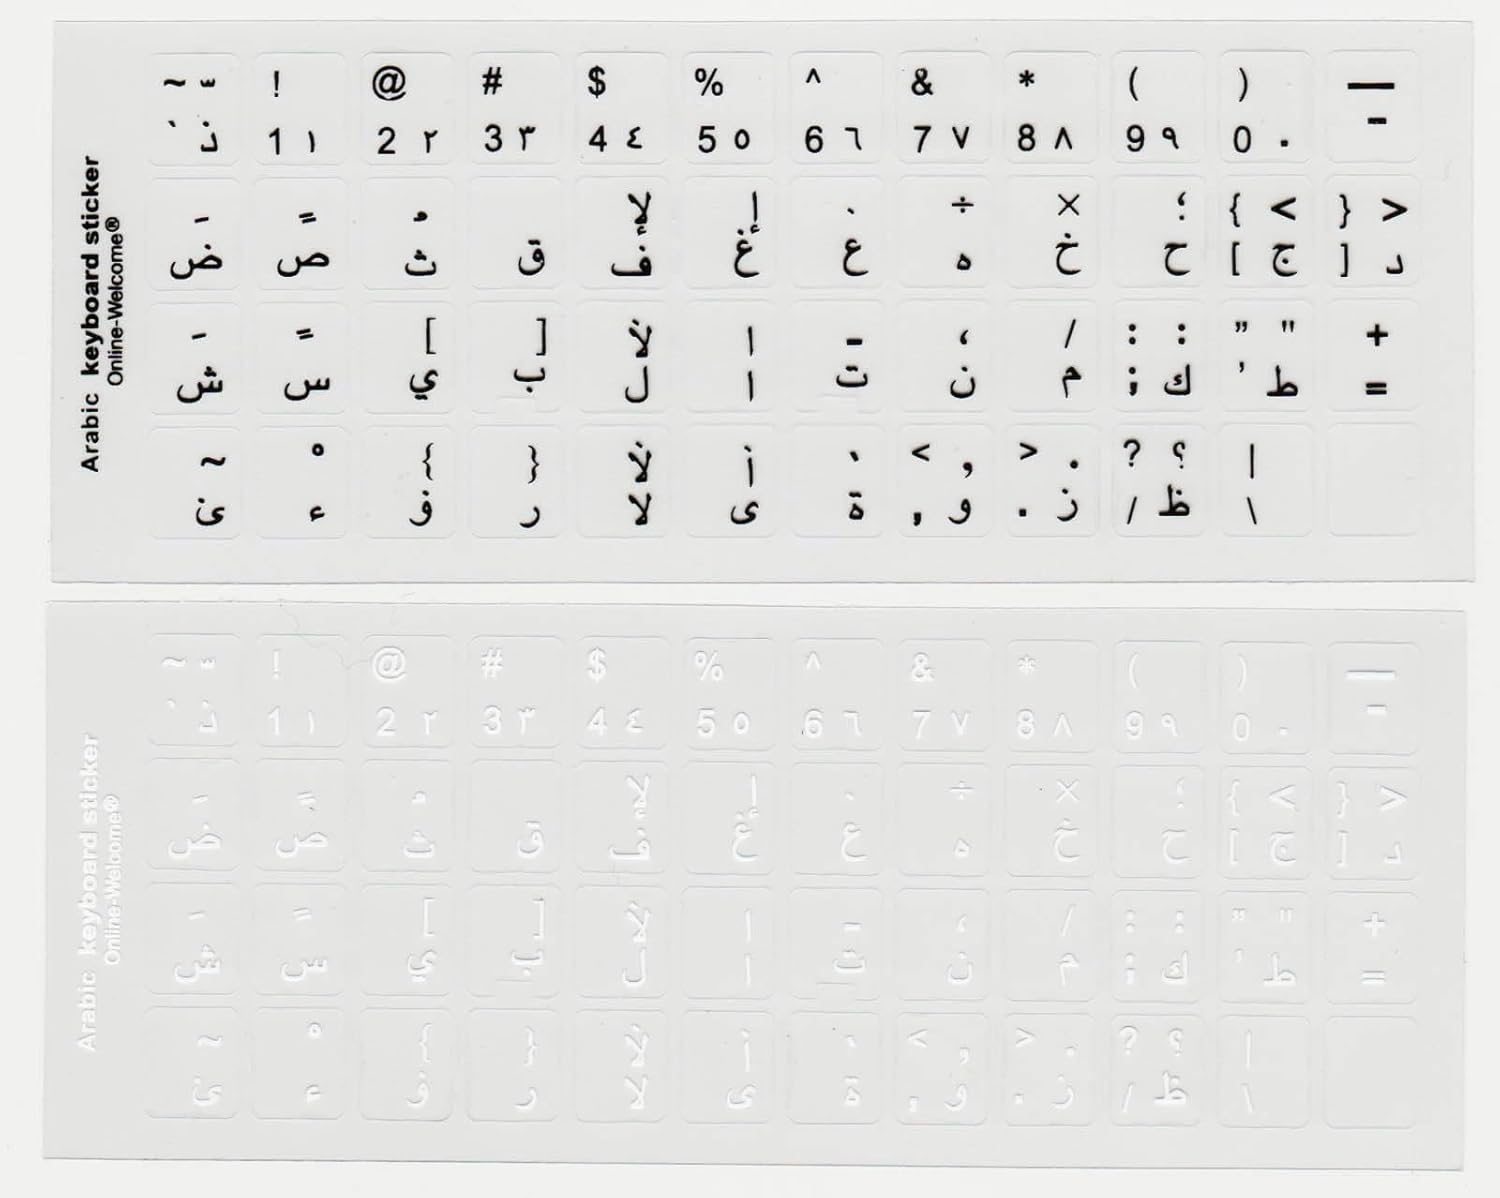 Arabic keyboard sticker
Online-Welcome®
~ ّ ! @ # $ % ^ & * ( ) —
` ذ 1 ١ 2 ٢ 3 ٣ 4 ٤ 5 ٥ 6 ٦ 7 ٧ 8 ٨ 9 ٩ 0 ٠ -
َ ً ُ لإ إ ‘ ÷ × ؛ { < } >
ض ص ث ق ف غ ع ه خ ح [ ج ] د
ِ ٍ [ ] لأ أ - ، / : : " " +
ش س ي ب ل ا ت ن م ; ك ' ط =
~ ْ { } لآ آ ' < , > . ? ؟ |
ئ ء ؤ ر لا ى ة , و . ز / ظ \
Arabic keyboard sticker
Online-Welcome®
~ ّ ! @ # $ % ^ & * ( ) —
` ذ 1 ١ 2 ٢ 3 ٣ 4 ٤ 5 ٥ 6 ٦ 7 ٧ 8 ٨ 9 ٩ 0 ٠ -
َ ً ُ لإ إ ‘ ÷ × ؛ { < } >
ض ص ث ق ف غ ع ه خ ح [ ج ] د
ِ ٍ [ ] لأ أ - ، / : : " " +
ش س ي ب ل ا ت ن م ; ك ' ط =
~ ْ { } لآ آ ' < , > . ? ؟ |
ئ ء ؤ ر لا ى ة , و . ز / ظ \